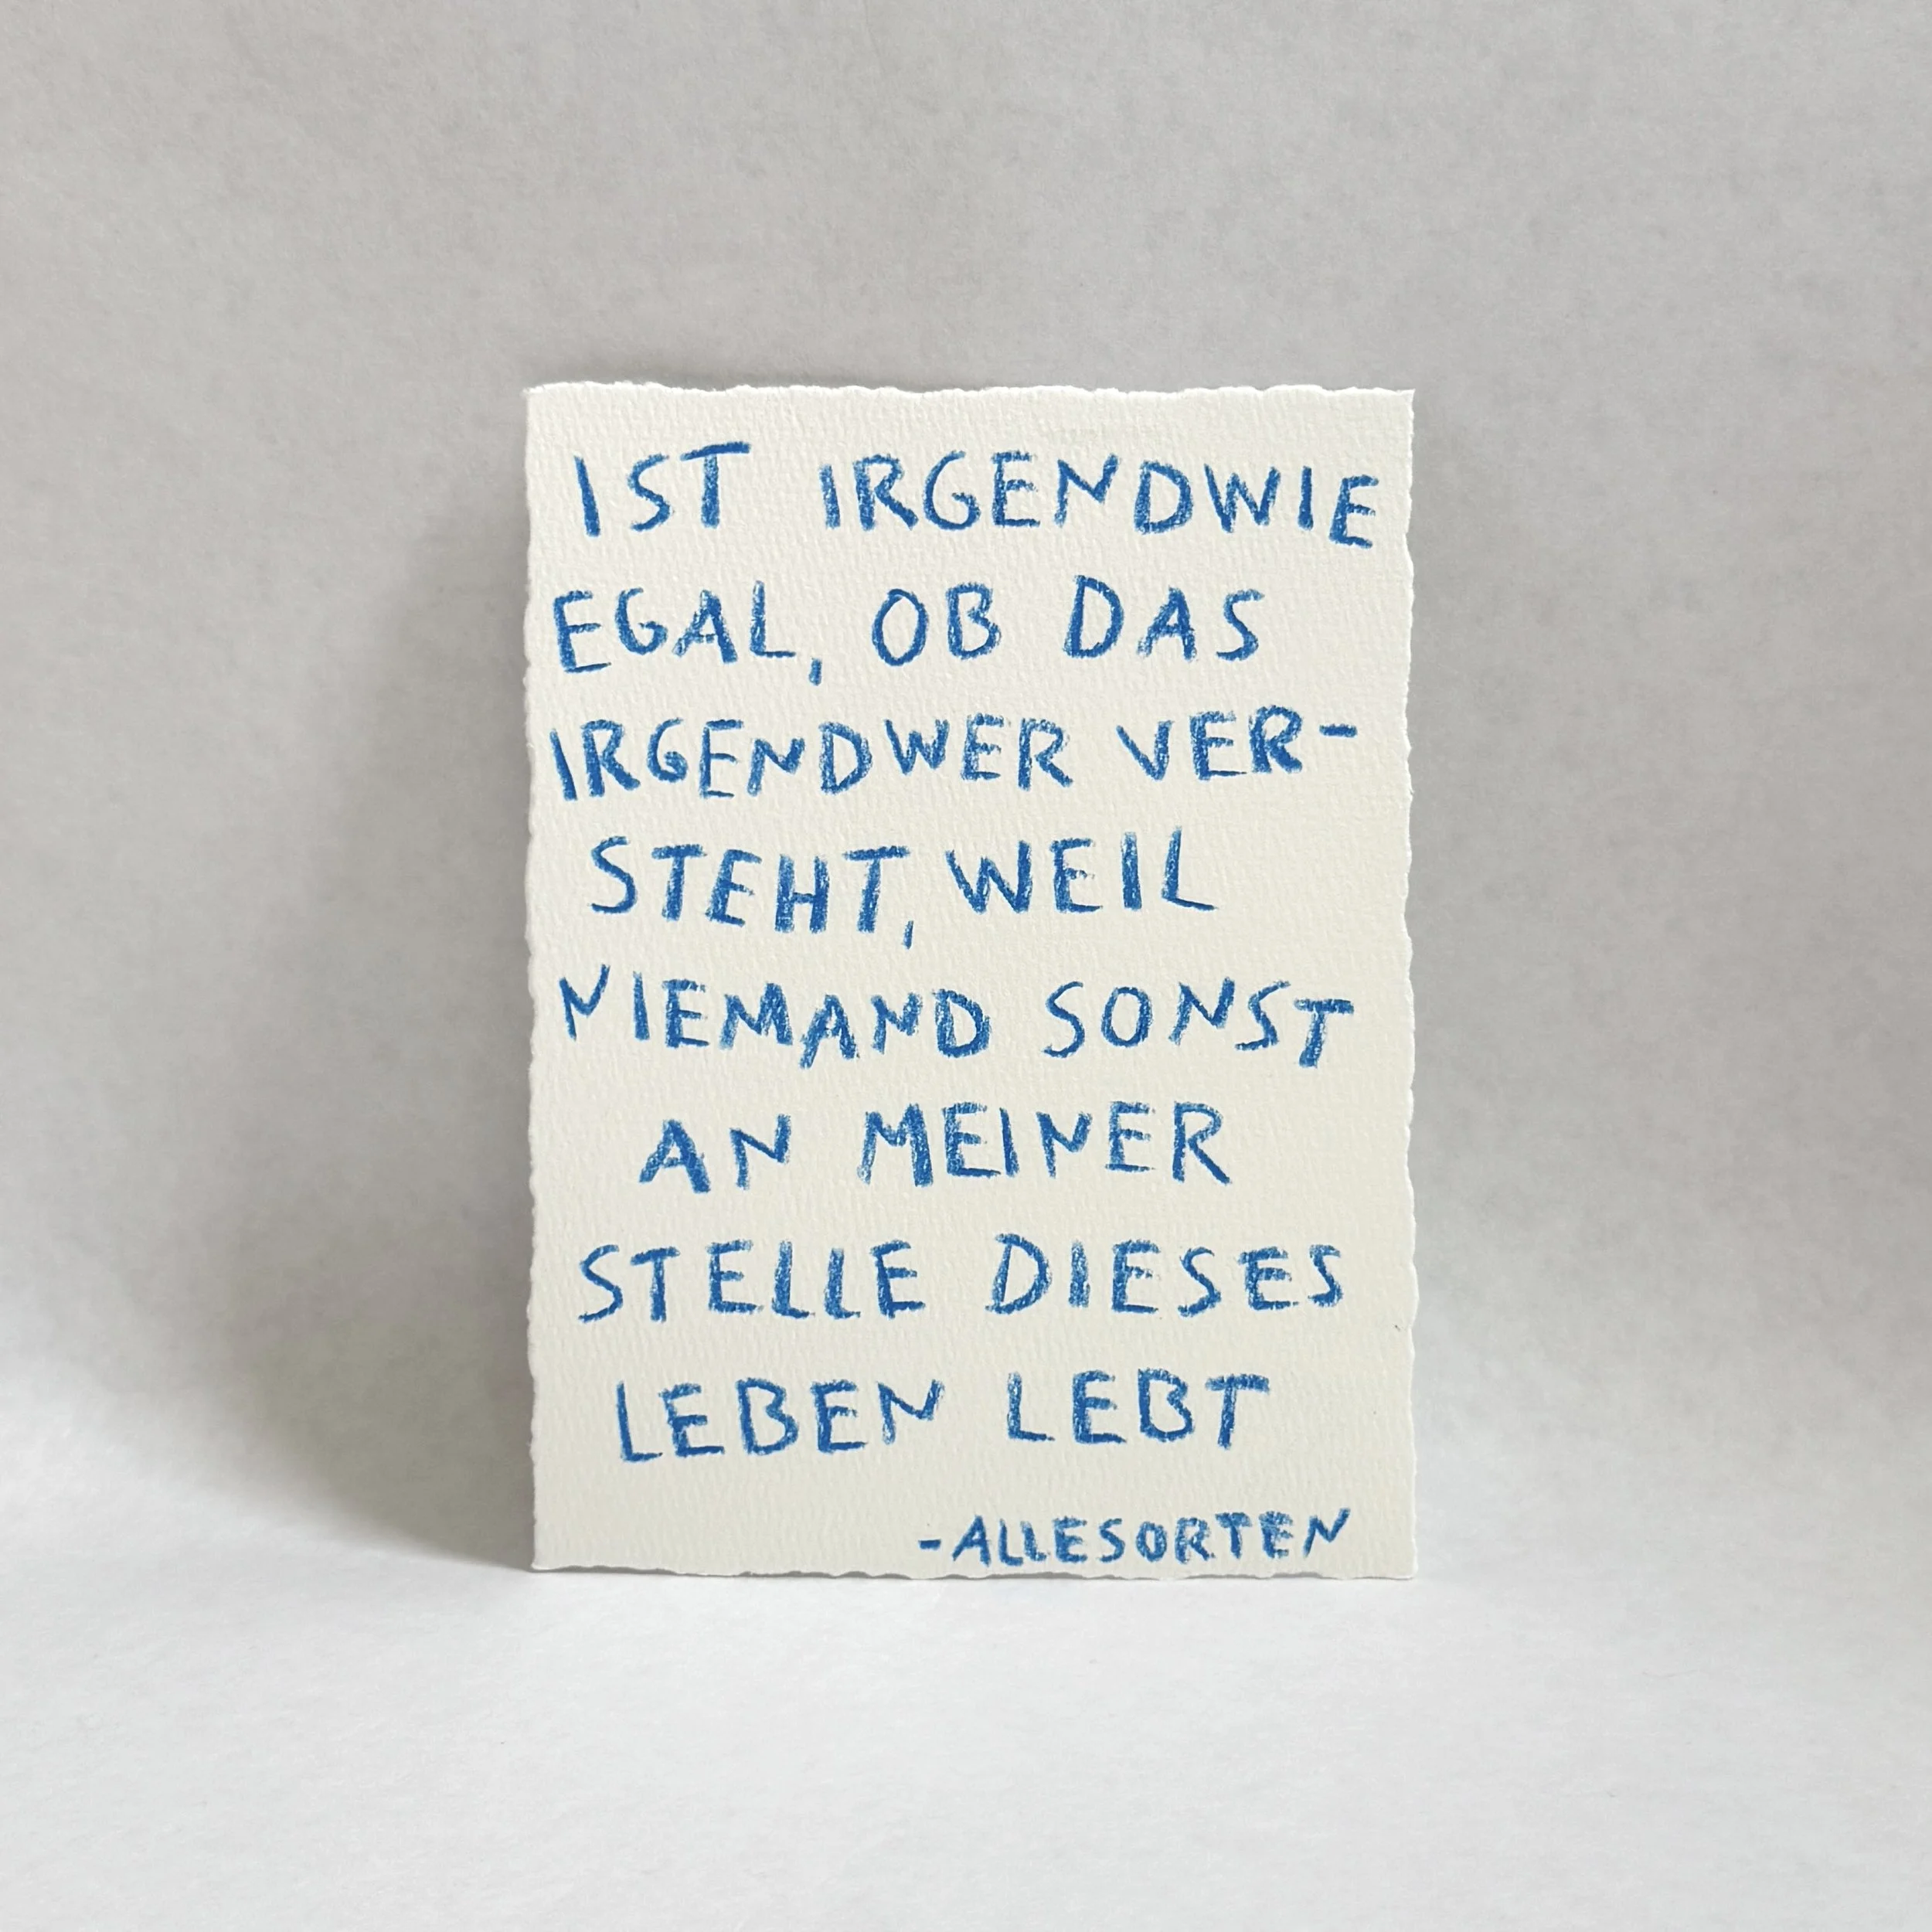 IST IRGENDWIE
EGAL, OB DAS
IRGENDWER VER-
STEHT, WEIL
NIEMAND SONST
AN MEINER
STELLE DIESES
LEBEN LEBT
-ALLESORTEN